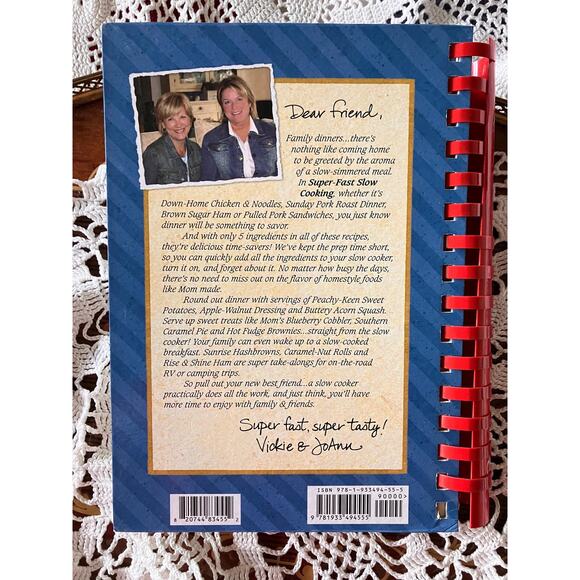 Dear Friend,
Family dinners...there's
nothing like coming home
to be greeted by the aroma
of a slow-simmered meal.
In Super-Fast Slow
Cooking, whether it's
Down-Home Chicken & Noodles, Sunday Pork Roast Dinner,
Brown Sugar Ham or Pulled Pork Sandwiches, you just know
dinner will be something to savor.
And with only 5 ingredients in all of these recipes,
they're delicious time-savers! We've kept the prep time short,
so you can quickly add all the ingredients to your slow cooker,
turn it on, and forget about it. No matter how busy the days,
there's no need to miss out on the flavor of homestyle foods
like Mom made.
Round out dinner with servings of Peachy-Keen Sweet
Potatoes, Apple-Walnut Dressing and Buttery Acorn Squash.
Serve up sweet treats like Mom's Blueberry Cobbler, Southern
Caramel Pie and Hot Fudge Brownies...straight from the slow
cooker! Your family can even wake up to a slow-cooked
breakfast. Sunrise Hashbrowns, Caramel-Nut Rolls and
Rise & Shine Ham are super take-alongs for on-the-road
RV or camping trips.
So pull out your new best friend...a slow cooker
practically does all the work, and just think, you'll have
more time to enjoy with family & friends.
Super fast, super tasty!
Vickie & JoAnn
ISBN 978-1-933494-55-5
90000>
8 20744 83455 2
9 781933 494555